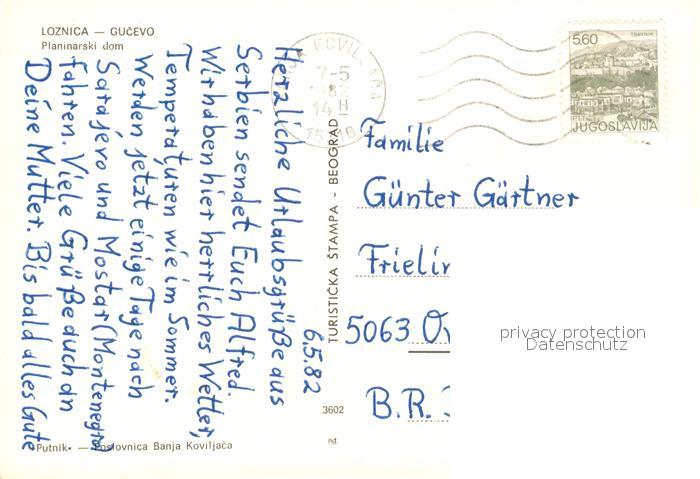 LOZNICA — GUČEVO
Planinarski dom
6.5.82
Herzliche Urlaubsgrüße aus
Serbien sendet Euch Alfred.
Wir haben hier herrliches Wetter,
Temperaturen wie im Sommer.
Werden jetzt einige Tage nach
Sarajevo und Mostar (Montenegro)
fahren. Viele Grüße auch an
Deine Mutter. Bis bald alles Gute
„Putnik“ — Poslovnica Banja Koviljača
TURISTIČKA ŠTAMPA - BEOGRAD
3602
KOVILJAČA
7-5
14
15316
5.60
TRAVNIK
PTT
JUGOSLAVIJA
Familie
Günter Gärtner
5063
B.R.
privacy protection
Datenschutz